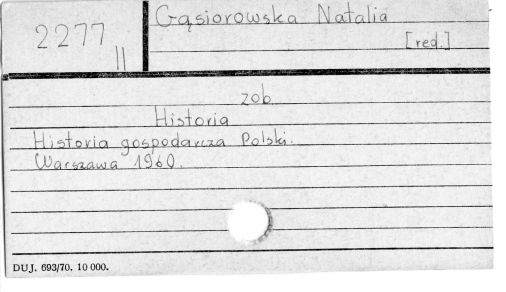 2277
II
Gąsiorowska Natalia
[red.]
zob.
Historia
Historia gospodarcza Polski.
Warszawa 1960.
DUJ. 693/70. 10 000.